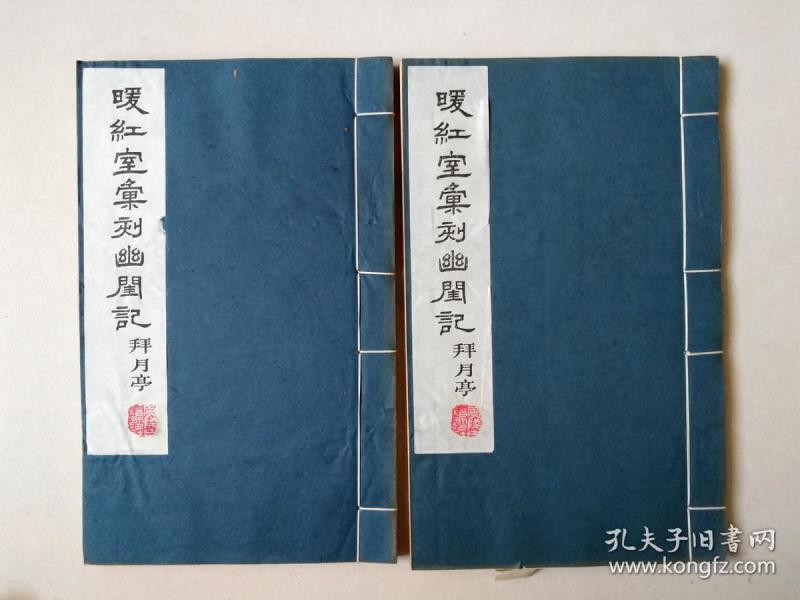 暖紅室彙刻幽閨記
拜月亭
暖紅室彙刻幽閨記
拜月亭
孔夫子旧書网
www.kongfz.com